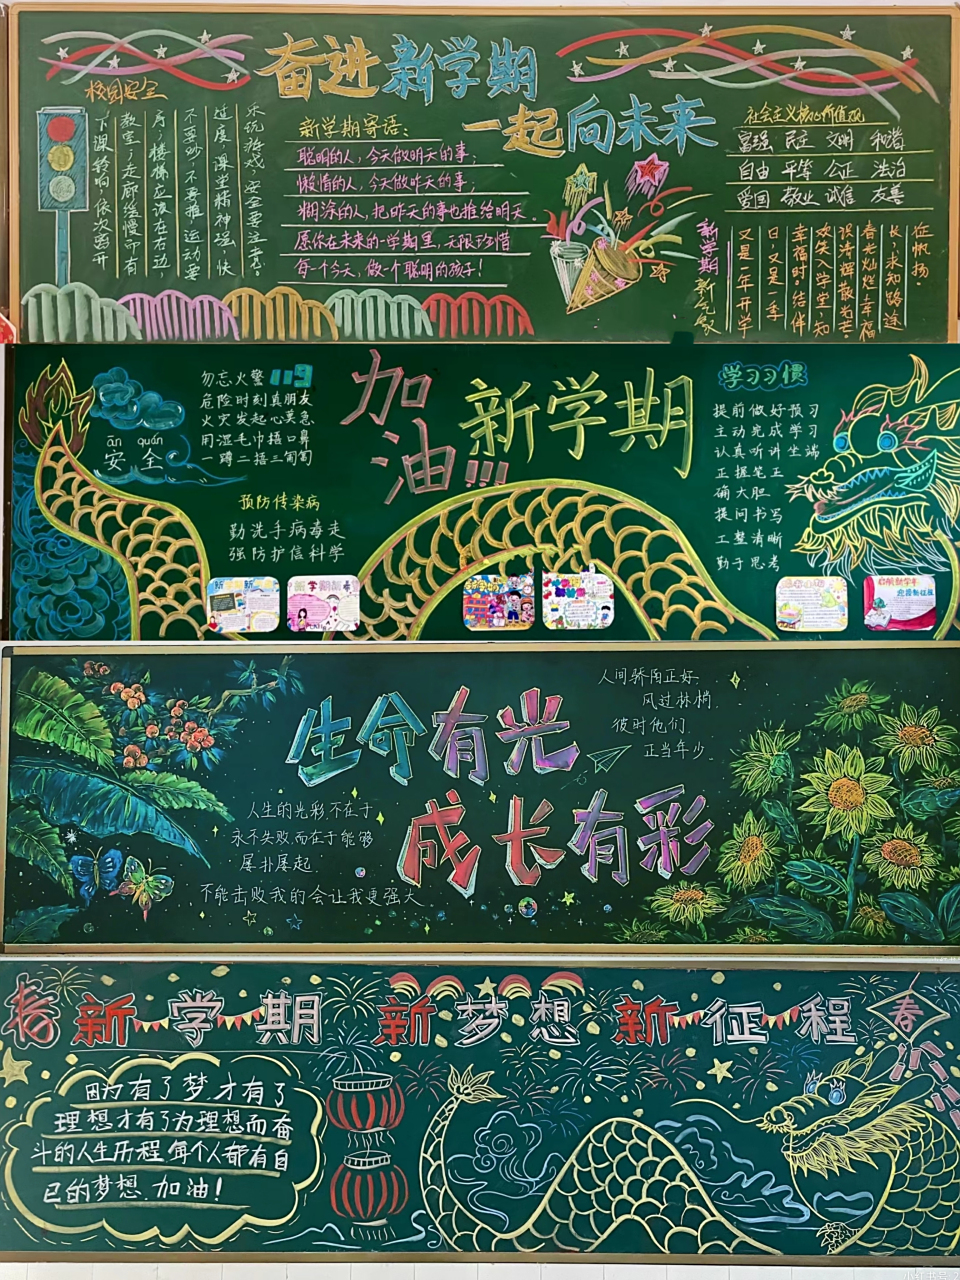 奋进新学期
一起向未来
校园安全
下课铃响,依次离开
教室;走廊缓慢即有
序,楼梯立波在右动,
不要吵,不要推,运动要
过度,课堂精神强,快
乐玩游戏,安全要注意。
新学期寄语:
聪明的人,今天做明天的事;
懒惰的人,今天做昨天的事;
糊涂的人,把昨天的事也推给明天。
愿你在未来的一学期里,无限珍惜
每一个今天,做一个聪明的孩子!
社会主义核心价值观
富强 民主 文明 和谐
自由 平等 公正 法治
爱国 敬业 诚信 友善
新学期 新气象
又是一年开学
日,又是一季
幸福时。结伴
欢笑入学堂,知
识海辉散光芒。
春光灿烂幸福
长,求知路途
征帆扬。
加油!!!
新学期
勿忘火警119
危险时刻真朋友
火灾发起心莫急
用湿毛巾捂口鼻
一蹲二捂三匍匐
ān quán
安全
预防传染病
勤洗手病毒走
强防护信科学
学习习惯
提前做好预习
主动完成学习
认真听讲坐端
正握笔正
确大胆
提问书写
工整清晰
勤于思考
生命有光
成长有彩
人间骄阳正好,
风过林梢,
彼时他们,
正当年少。
人生的光彩不在于
永不失败,而在于能够
屡扑屡起.
不能击败我的会让我更强大
春
新学期 新梦想 新征程
春
因为有了梦,才有了
理想才有了为理想而奋
斗的人生历程,每个人都有自
己的梦想.加油!